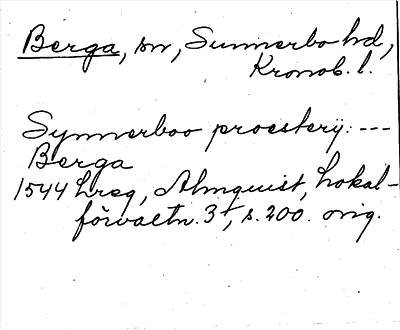 Berga, sn, Sunnerbo hd,
Kronob. l.
Synnerboo proesterij: ---
Berga
1544 Lreg, Almquist, Lokal-
förvaltn. 3, s. 200. orig.